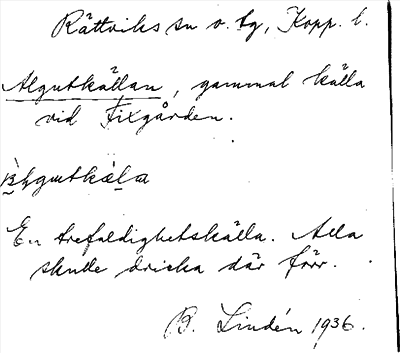 Rättviks sn o. tg, Kopp. l.
Algutkällan, gammal källa
vid Fixgården.
En trefaldighetskälla. Alla
skulle dricka där förr.
B. Lindén 1936.